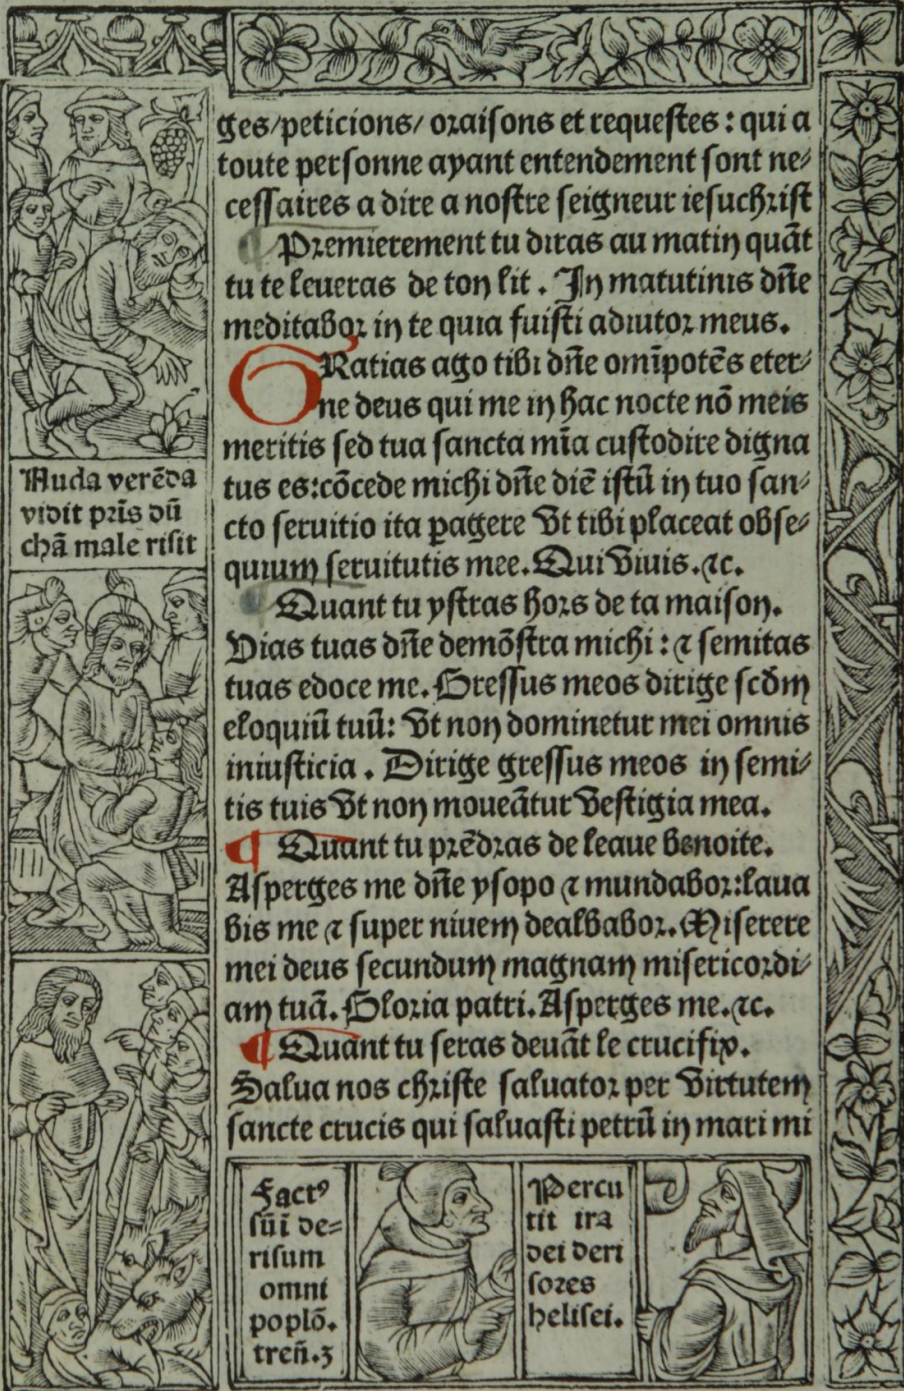 ges/peticions/ oraisons et requestes : qui a
toute personne ayant entendement sont ne⸗
cessaires a dire a nostre seigneur iesuchrist
¶ Premierement tu diras au matin quãt
tu te leueras de ton lit . In matutinis dñe
meditabor in te quia fuisti adiutor meus.
GRatias ago tibi dñe omĩpotẽs eter⸗
ne deus qui me in hac nocte nõ meis
meritis sed tua sancta mĩa custodire digna
tus es:cõcede michi dñe diẽ istũ in tuo san⸗
cto seruitio ita ꝑagere vt tibi placeat obse⸗
quium seruitutis mee. Qui viuis.⁊c.
¶ Quant tu ystras hors de ta maison.
Vias tuas dñe demõstra michi : ⁊ semitas
tuas edoce me. Gressus meos dirige scđm
eloquiũ tuũ: vt non dominetur mei omnis
iniusticia . Dirige gressus meos in semi⸗
tis tuis vt non moueãtur vestigia mea.
¶ Quant tu prẽdras de leaue benoite.
Asperges me dñe ysopo ⁊ mundabor:laua
bis me ⁊ super niuem dealbabor. Miserere
mei deus secundum magnam misericordi⸗
am tuã. Gloria patri. Asperges me.⁊c.
¶ Quant tu seras deuãt le crucifix.
Salua nos christe saluator per virtutem
sancte crucis qui saluasti petrũ in mari mi
Nuda verẽda
vidit pr̃is dũ
chã male risit
Factꝰ
sũi de=
risum
omni
poplõ.
treñ.3
Percu
tit ira
dei deri
sores
helisei.